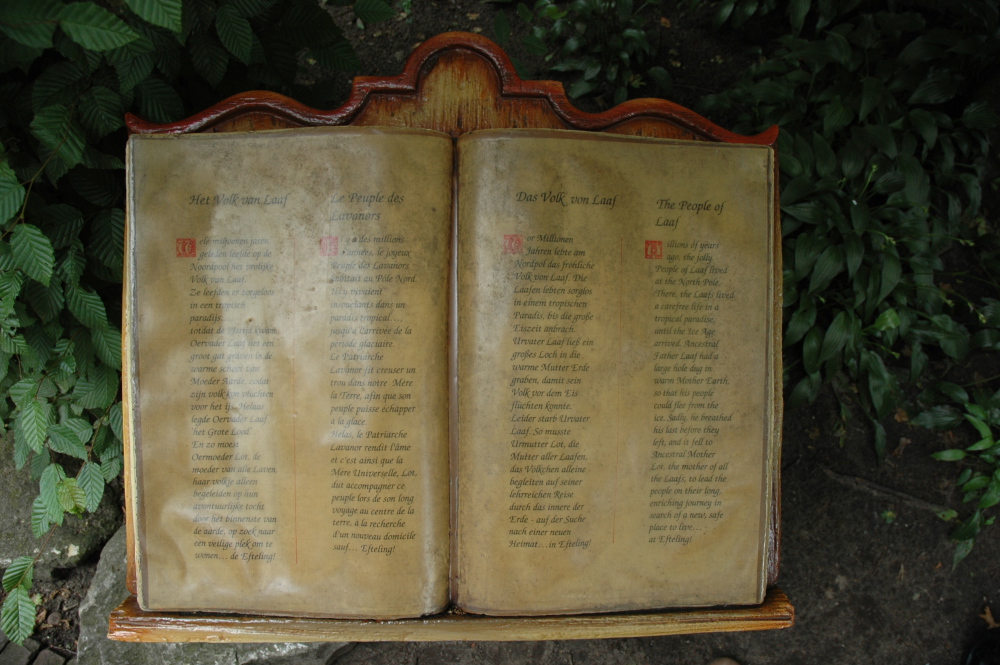 Het Volk van Laaf
eel miljoenen jaren
geleden leefde op de
Noordpool het vrolijke
Volk van Laaf.
Ze leefden er zorgeloos
in een tropisch
paradijs...
totdat de IJstijd kwam.
Oervader Laaf liet een
groot gat graven in de
warme schoot van
Moeder Aarde, zodat
zijn volk kon vluchten
voor het ijs. Helaas
legde Oervader Laaf
het Grote Lood
En zo moest
Oermoeder Lot, de
moeder van alle Laven,
haar volkje alleen
begeleiden op hun
avontuurlijke tocht
door het binnenste van
de aarde, op zoek naar
een veilige plek om te
wonen... de Efteling!
Le Peuple des
Lavanors
l y a des millions
d'années, le joyeux
Peuple des Lavanors
habitait au Pôle Nord.
Ils y vivaient
insouciants dans un
paradis tropical....
jusqu'à l'arrivée de la
période glaciaire.
Le Patriarche
Lavanor fit creuser un
trou dans notre Mère
la Terre, afin que son
peuple puisse échapper
à la glace.
Hélas, le Patriarche
Lavanor rendit l'âme
et c'est ainsi que la
Mère Universelle, Lot,
dut accompagner ce
peuple lors de son long
voyage au centre de la
terre, à la recherche
d'un nouveau domicile
sauf... Efteling!
Das Volk von Laaf
Vor Millionen
Jahren lebte am
Nordpol das fröhliche
Volk von Laaf. Die
Laafen lebten sorglos
in einem tropischen
Paradis, bis die große
Eiszeit anbrach.
Urvater Laaf ließ ein
großes Loch in die
warme Mutter Erde
graben, damit sein
Volk vor dem Eis
flüchten konnte.
Leider starb Urvater
Laaf. So musste
Urmutter Lot, die
Mutter aller Laafen,
das Völkchen alleine
begleiten auf seiner
lehrreichen Reise
durch das innere der
Erde - auf der Suche
nach einer neuen
Heimat...in Efteling!
The People of
Laaf
Millions of years
ago, the jolly
People of Laaf lived
at the North Pole.
There, the Laafs lived
a carefree life in a
tropical paradise,
until the Ice Age
arrived. Ancestral
Father Laaf had a
large hole dug in
warm Mother Earth,
so that his people
could flee from the
ice. Sadly, he breathed
his last before they
left, and it fell to
Ancestral Mother
Lot, the mother of all
the Laafs, to lead the
people on their long,
enriching journey in
search of a new, safe
place to live...
at Efteling!